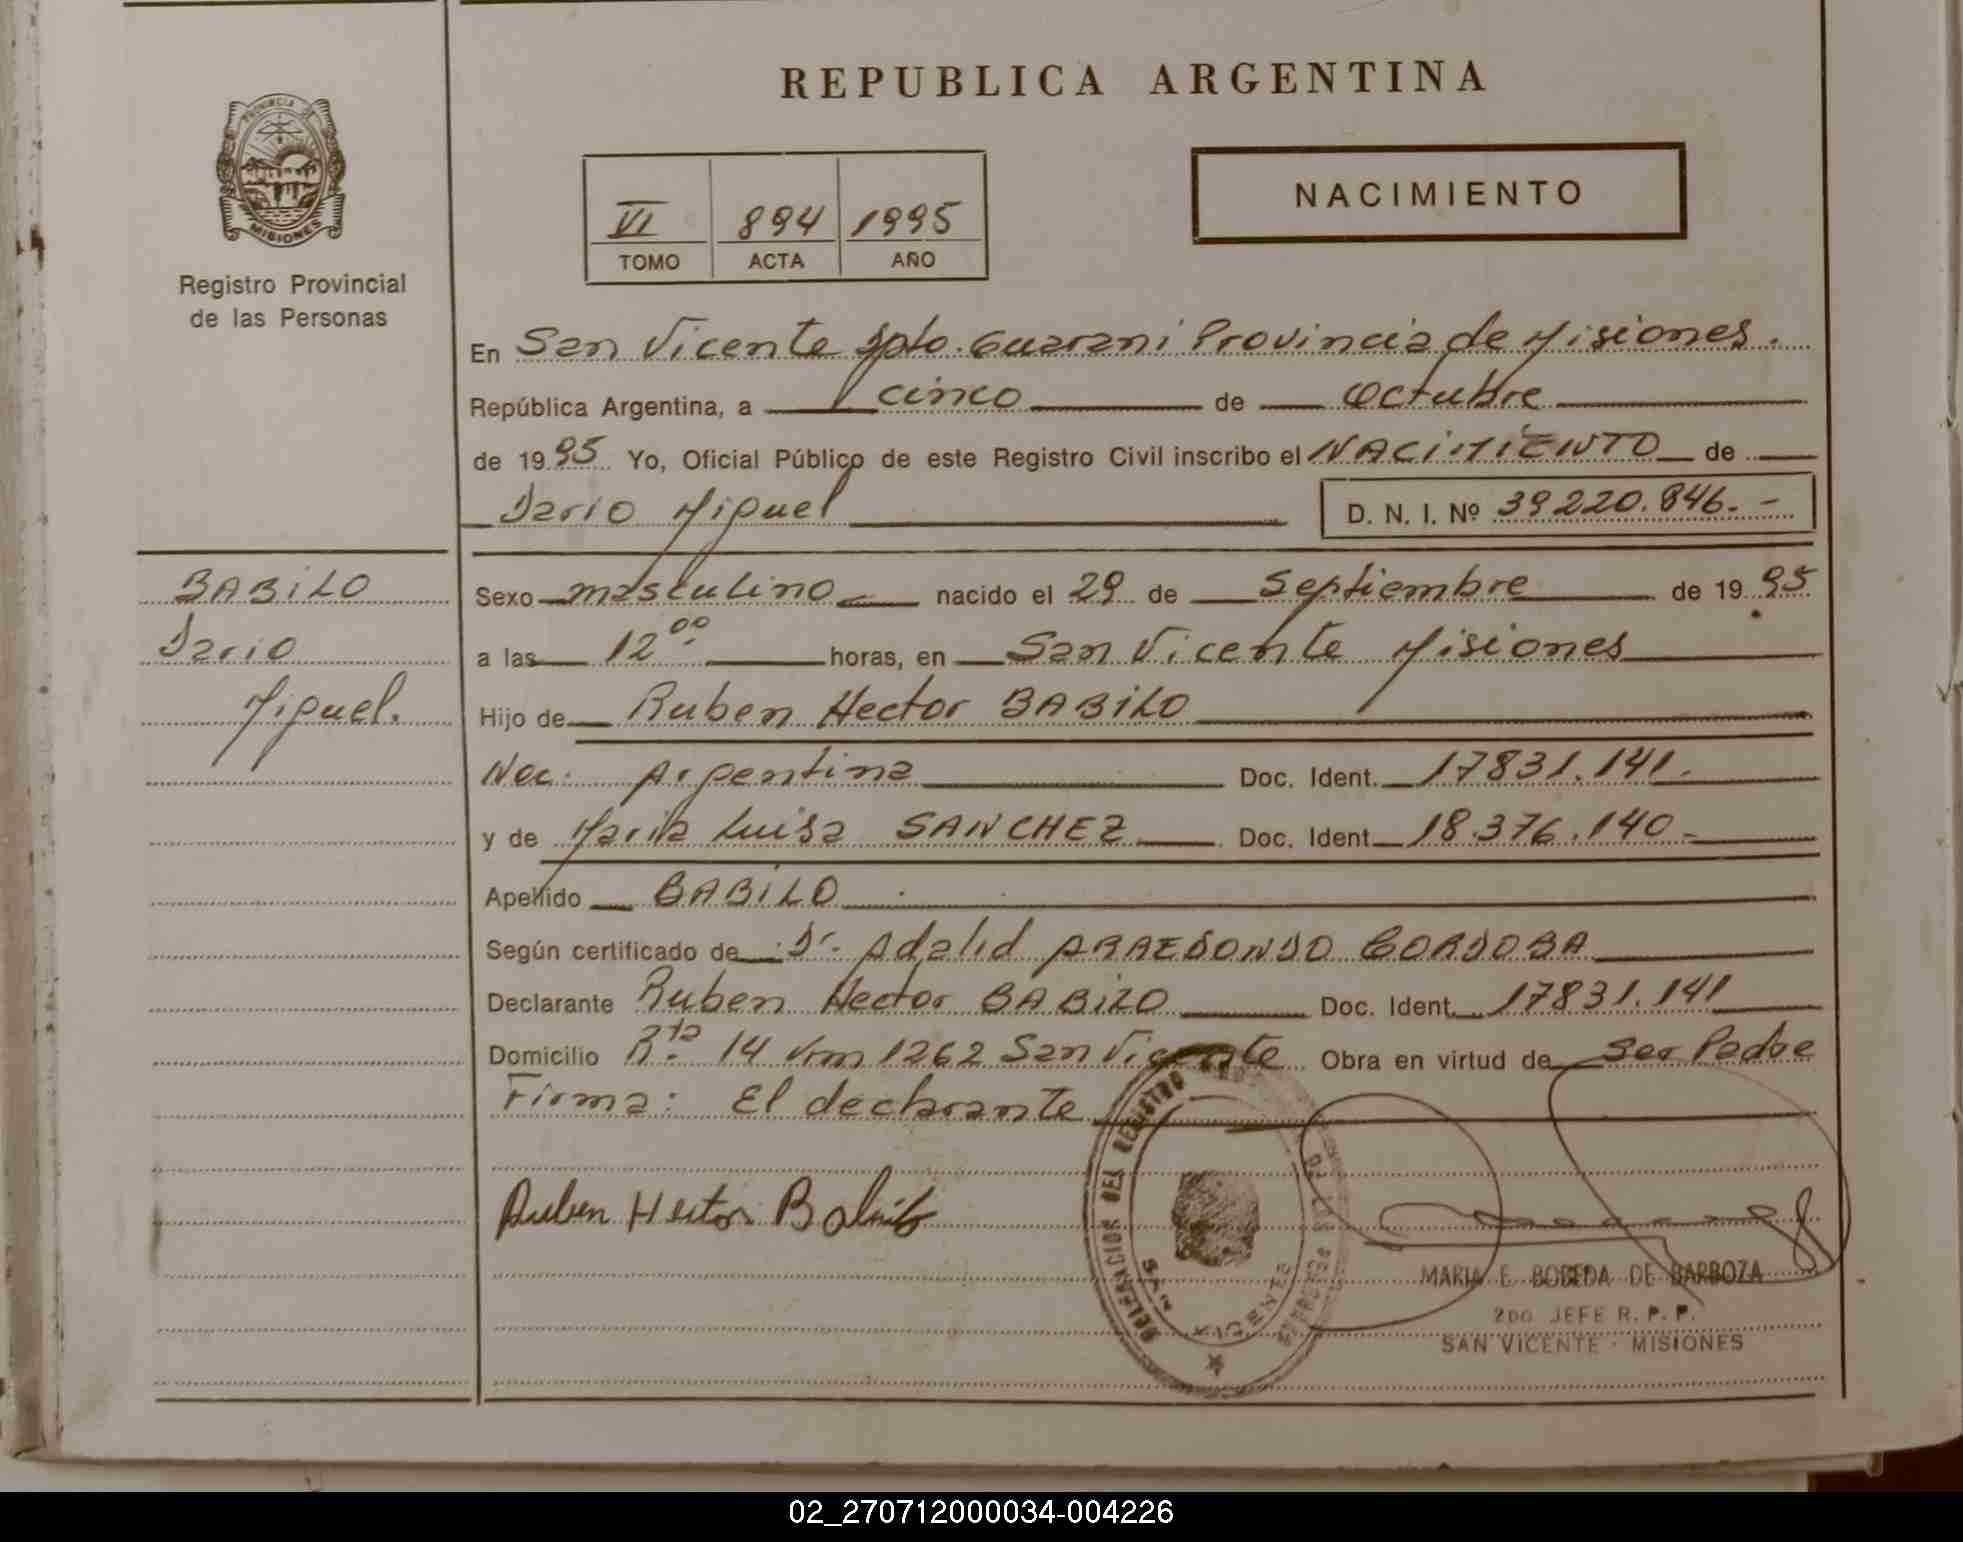 REPUBLICA ARGENTINA
PROVINCIA DE
MISIONES
Registro Provincial
de las Personas
NACIMIENTO
VI 894 1995
TOMO ACTA AÑO
En San Vicente Dpto. Guarani Provincia de Misiones.
República Argentina, a cinco de Octubre
de 1995 Yo, Oficial Público de este Registro Civil inscribo el NACIMIENTO de
Dario Miguel D. N. I. Nº 39220.846.-
BABILO
Dario
Miguel.
Sexo masculino nacido el 29 de Septiembre de 1995
a las 12 00 horas, en San Vicente Misiones
Hijo de Ruben Hector BABILO
Nac. Argentina Doc. Ident. 17831.141.
y de Maria Luisa SANCHEZ Doc. Ident 18.376.140-
Apellido BABILO
Según certificado de Dr. Adalid ARREDONDO CORDOBA
Declarante Ruben Hector BABILO Doc. Ident. 17831.141
Domicilio Rta. 14 Km 1262 San Vicente Obra en virtud de ser Padre
Firma: El declarante
Ruben Hector Babilo
DELEGACION DEL REGISTRO
SAN VICENTE
MARIA E. BOBEDA DE BARBOZA
2DO JEFE R. P. P.
SAN VICENTE - MISIONES
02_270712000034-004226